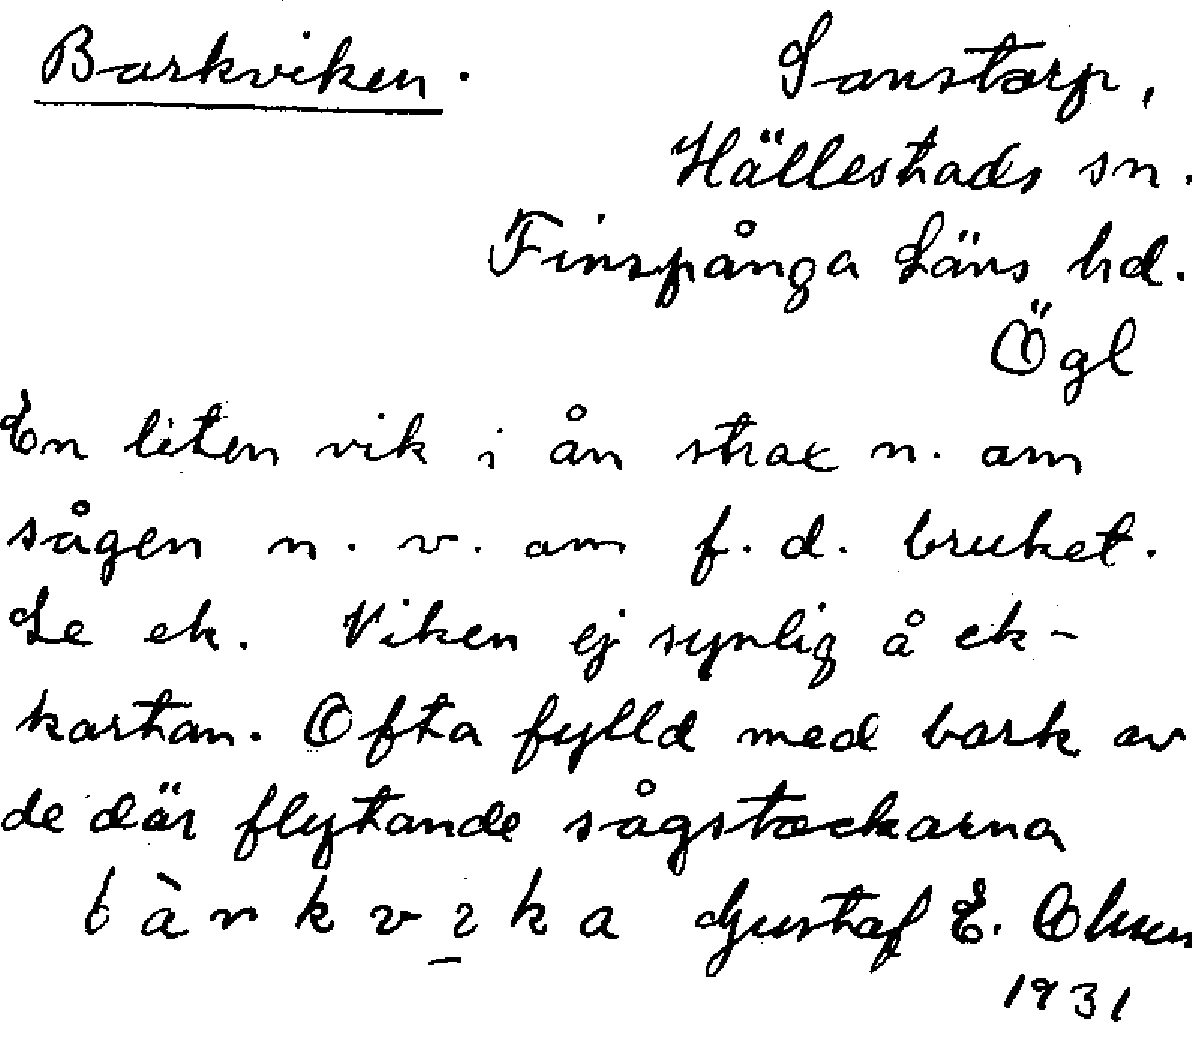 Barkviken. Sonstorp,
Hällestads sn.
Finspånga Läns hd.
Ögl
En liten vik i ån strax n. om
sågen n. v. om f. d. bruket.
Se ek. Viken ej synlig å ek-
kartan. Ofta fylld med bark av
de där flytande sågstockarna
bàrkvika Gustaf E. Olsson
1931